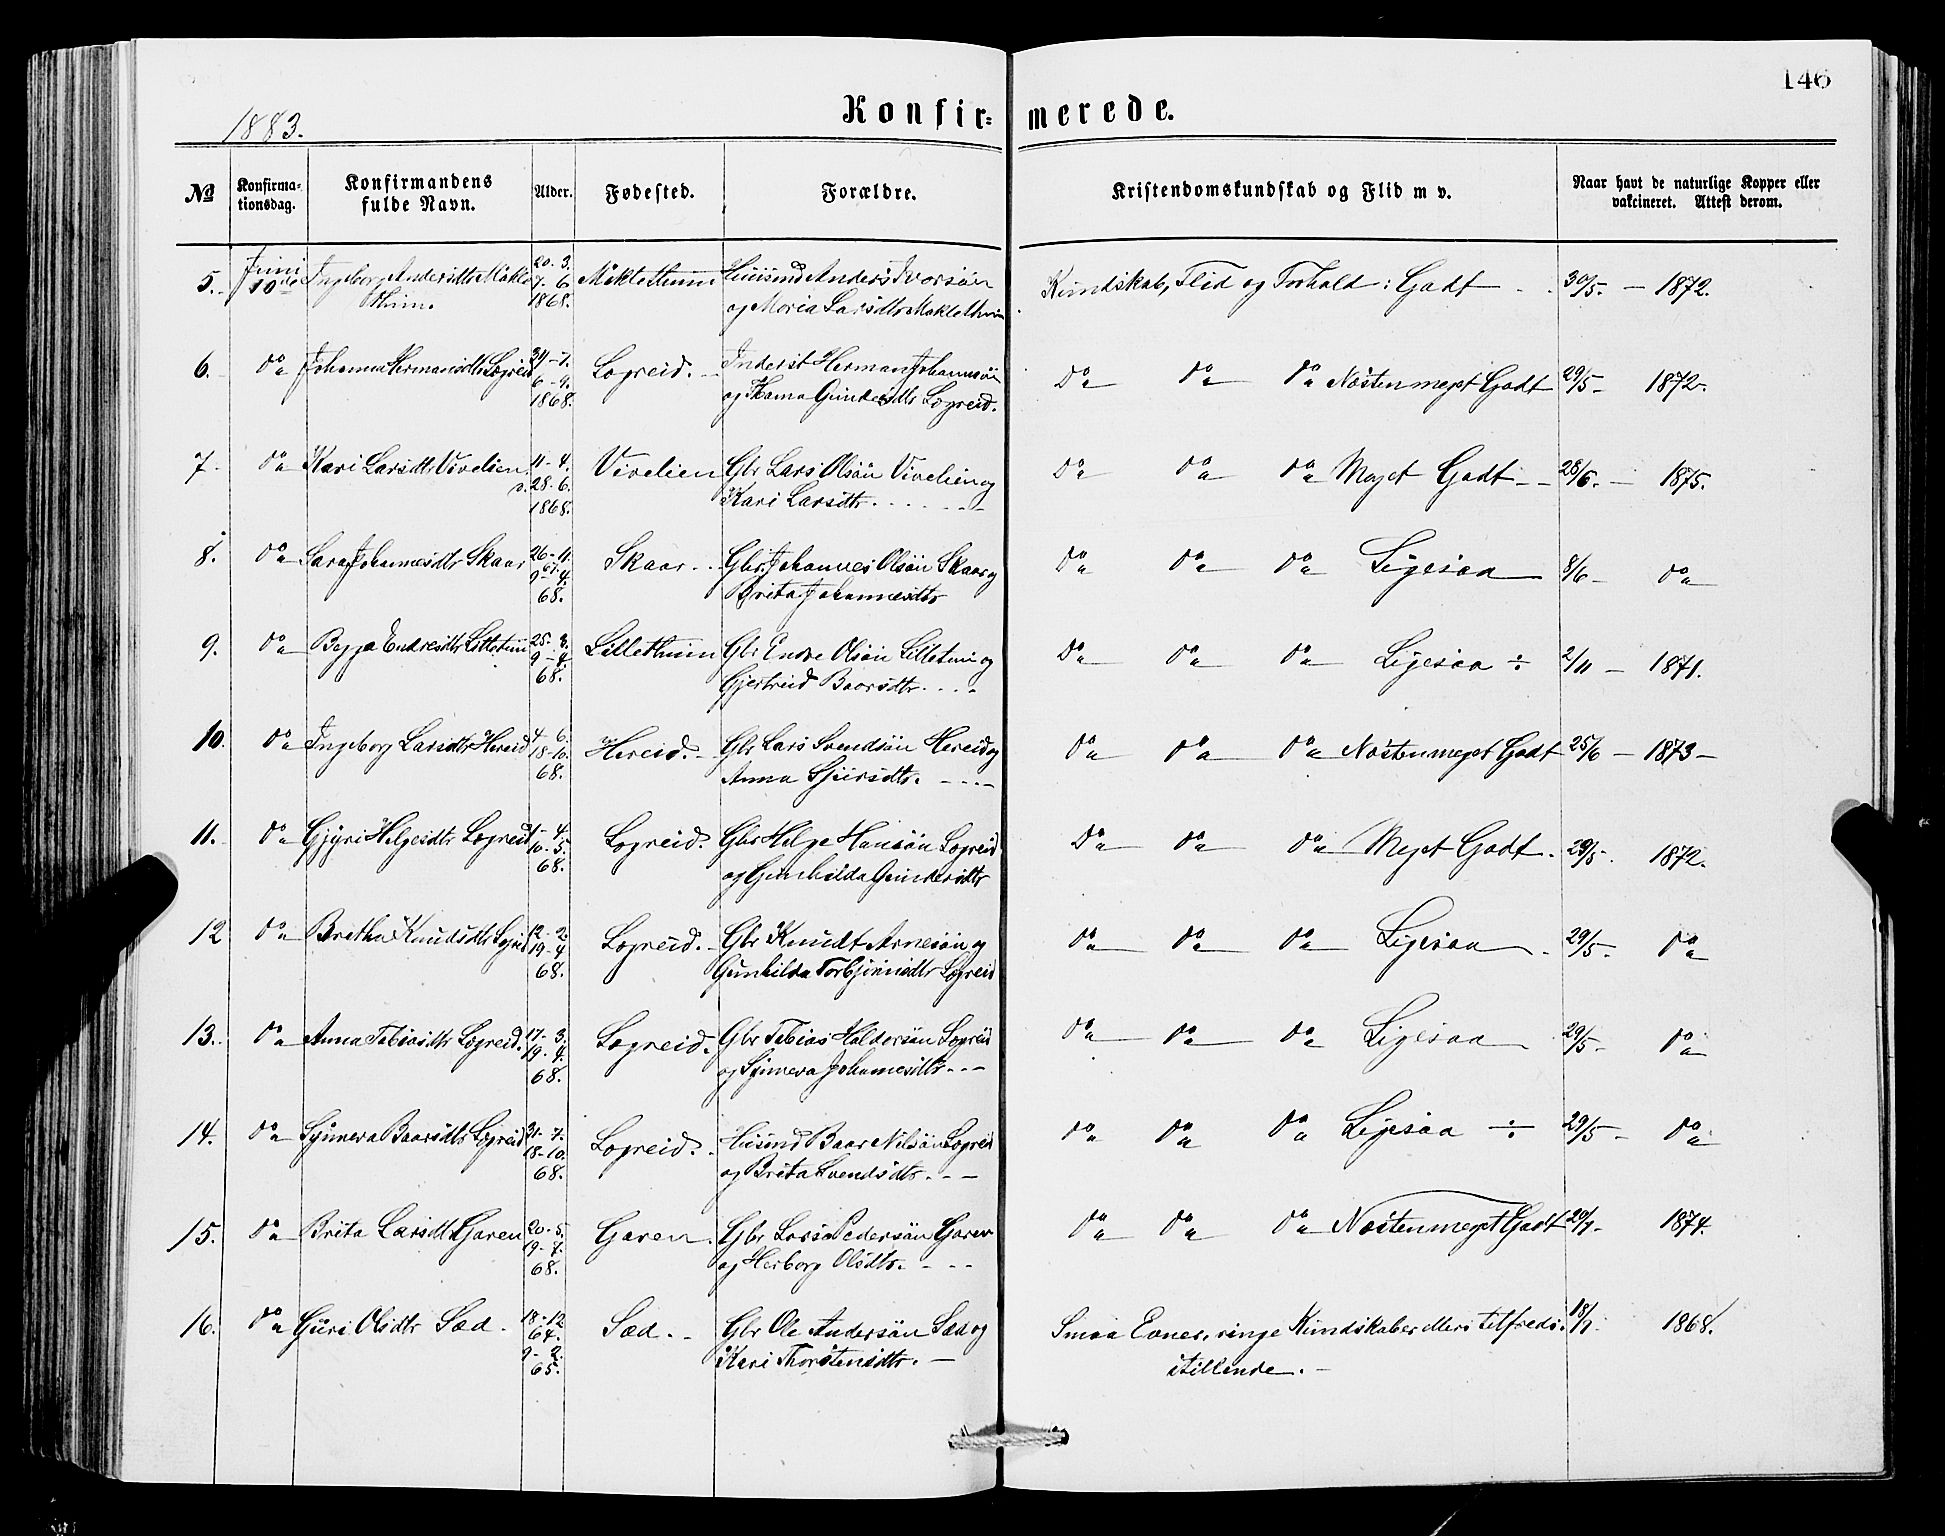 146
1883.
Konfir= merede.
№
Konfirma=
tionsdag.
Konfirmandens
fulde Navn.
Alder.
Fødested.
Forældre.
Kristendomskundskab og Flid m v.
Naar havt de naturlige Kopper eller
vakcineret. Attest derom.
5. Juni Ingeborg Andersdtr Mäkle 20-3. Mäklethun Husmd Anders Ivorsøn Kundskab, Flid og Forhold: Godt 30/5. - 1872.
10de thun. 7-6 og Maria Larsdtr Maklethun
1868.
6. do Johanna Hermansdtr Lægreid 24-7. Lægreid. Inderst Herman Johannsøn Do do do Næsten meget Godt 29/5- 1872.
6-9. og Gundersdtr Lægreid.
1868.
7. do Kari Larsdtr Vivelien 11-4. Vivelien Gbr Lars Olsøn Vivelien og Do do do Meget Godt - 28/6. - 1875.
28-6. Kari Larsdtr.
1868.
8. do Sara Johannesdtr Skaar 26-11. Skaar. Gbr. Johannes Olsøn Skaar og Do do do Ligesaa 8/6- do
67. Brita Johannesdtr
9-4.
68.
9. do Bagga Endresdtr Lilletun 25-3. Lillethun Gbr Endre Olsøn Lilletun og Do do do Ligesaa ÷ 2/11 - 1871.
9-4. Gjertrud Baarsdtr.
68.
10. do Ingeborg Larsdtr Hereid 4-6. Hereid. Gbr Lars Svendsøn Hereid og do do do Næsten meget Godt 25/6 - 1873-
18-10. Anna Sjursdtr.
68.
11. do Gjyri Helgesdtr Lægreid 1-4. Lægreid. Gbr Helge Hansøn Lægreid Do do do Meget Godt. 29/5. 1872.
10-5. og Gunhilda Gundersdtr
68.
12 do Bretha Knudsdtr Lægreid 12-2. Lægreid. Gbr Knudt Arnesøn og do do do Ligesaa 29/5- do
19-4 Gunhilda Torbjørnsdtr Lægreid
68.
13. do Anna Tobiasdtr Lægreid. 17-3. Lægreid. Gbr Tobias Haldorsøn Lægreid do do do Ligesaa 29/5- do
19-4. og Synneva Johannesdtr
68.
14. do Synneva Baarsdtr Lægreid 31-7. Lægreid. Husmd Baar Nilsøn Lægreid do do do Ligesaa ÷ 29/5- do
18-10. og Brita Svendsdtr.
68.
15. do Brita Larsdtr Garen 20-5. Garen. Gbr Lars Pedersøn Garen do do do Næsten meget Godt 1874.
19-7. og Herborg Olsdtr.
68.
16. do Guri Olsdtr Sæd. 18-12 Sæd. Gbr Ole Andersøn Sæd og Smaa Evner, ringe Kundskaber ellers tilfreds- 1868.
64. Kari Thorstensdtr. stillende.
9-2.
65.